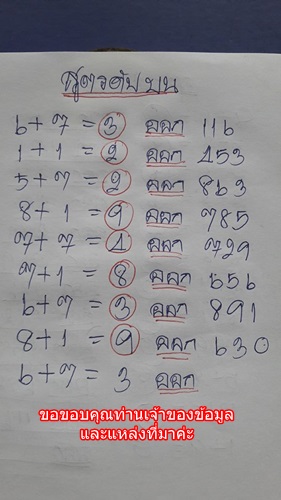 สูตรดับบน
6+7 = 3 ออก 116
1+1 = 2 ออก 453
5+7 = 2 ออก 863
8+1 = 9 ออก 785
7+7 = 4 ออก 729
7+1 = 8 ออก 656
6+7 = 3 ออก 891
8+1 = 9 ออก 630
6+7 = 3 ออก
ขอขอบคุณท่านเจ้าของข้อมูล
และแหล่งที่มาค่ะ